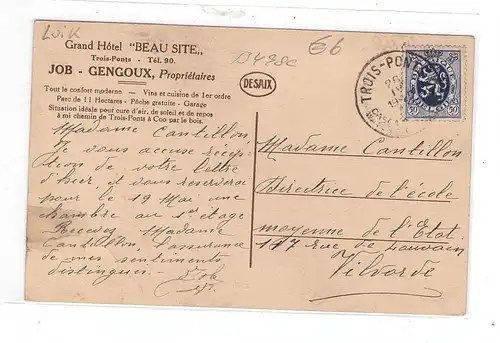 Luik
Grand Hôtel "BEAU SITE„
Trois-Ponts - Tél. 90.
JOB - GENGOUX, Propriétaires
Tout le confort moderne - Vins et cuisine de 1er ordre
Parc de 11 Hectares - Pêche gratuite - Garage
Situation idéale pour cure d'air, de soleil et de repos
à mi chemin de Trois-Ponts à Coo par le bois.
66
DESAIX
TROIS-PONTS
Madame Cantillon
Je vous accuse récep
tion de votre lettre
d'hier, et vous reserverai
pour le 19 Mai une
chambre au 1er etage
Recevez Madame
Cantillon, l'assurance
de mes sentiments
distingués.
Job
Madame Cantillon
Directrice de l'école
moyenne de l'Etat
117 rue de Louvain
Vilvorde
50 50